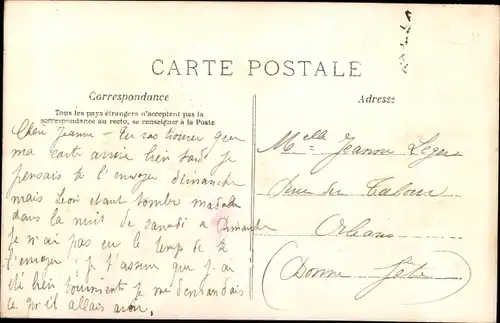 CARTE POSTALE
Correspondance
Tous les pays étrangers n'acceptent pas la
correspondance au recto, se renseigner à la Poste.
Adresse
Chère Jeanne - Tu vas trouver que
ma carte arrive bien tard je
pensais te l'envoyer dimanche
mais Léon étant tombé malade
dans la nuit de samedi à Dimanche
je n'ai pas eu le temps de te
l'envoyer, je t'assure que j'ai
été bien tourmenté je me demandais
ce qu'il allait avoir.
Melle Jeanne Léger
Rue du Tabour
Orléans
(Bonne fête)